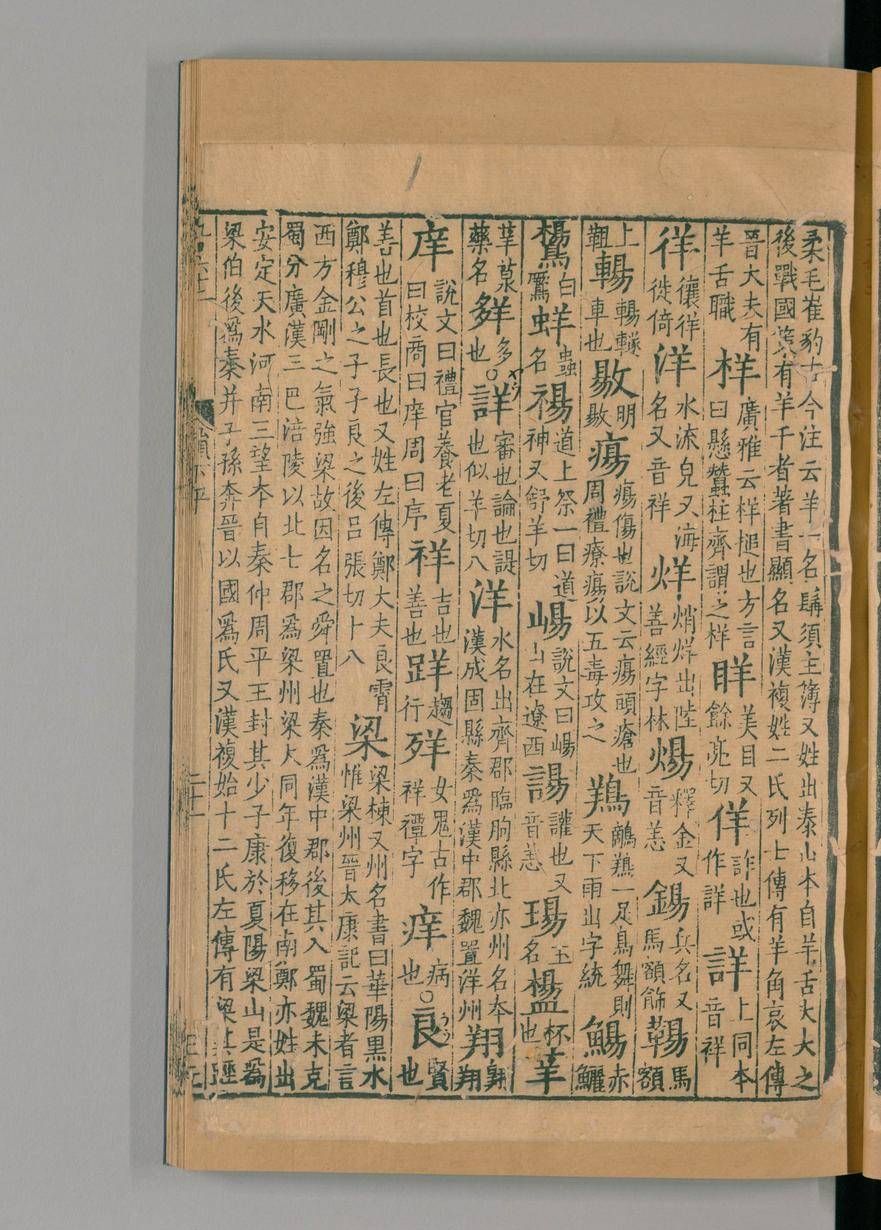 柔毛崔豹古今注云羊一名髯須主簿又姓出泰山本自羊舌大夫之後戰國策有羊千者著書顯名又漢複姓二氏列士傳有羊角哀左傳
晉大夫有羊舌職样廣雅云样槌也方言曰懸蠶柱齊謂之样眻美目又餘亮切佯詐也或作詳詳上同本音祥
徉儴徉徙倚洋水流皃又海名又音祥烊焇烊出陸善經字林煬釋金又音恙鍚兵名又馬額飾馬額
上靻輰輰轙車也敭明敭瘍瘍傷也說文云瘍頭瘡也周禮療瘍以五毒攻之鸉鸍鸉一足鳥舞則天下雨出字統鰑赤鱺
鸉白鷢蛘蟲名禓道上祭一曰道神又舒羊切崵說文曰崵山在遼西諹讙也又音恙瑒玉名杯也
藥名多也○詳審也論也諟也似羊切八洋水名出齊郡臨朐縣北亦州名本漢成固縣秦爲漢中郡魏置洋州翔翱翔
庠說文曰禮官養老夏曰校商曰庠周曰序祥吉也善也趨行女鬼古作祥禫字痒病也○良賢也
善也首也長也又姓左傳鄭大夫良霄鄭穆公之子子良之後呂張切十八梁梁棟又州名書曰華陽黑水惟梁州晉太康記云梁者言
西方金剛之氣強梁故因名之舜置也秦爲漢中郡後其入蜀魏末克蜀分廣漢三巴涪陵以北七郡爲梁州梁大同年復移在南鄭亦姓出
安定天水河南三望本自秦仲周平王封其少子康於夏陽梁山是爲梁伯後爲秦并子孫奔晉以國爲氏又漢複姓十二氏左傳有梁其踁
二十一